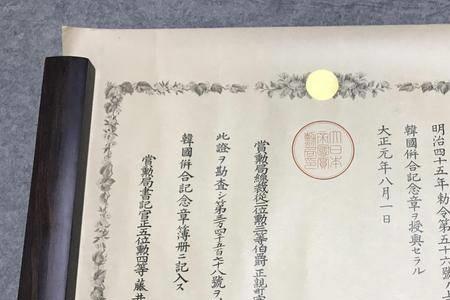 明治四十五年勅令第五十六號
韓國倂合記念章ヲ授與セラル
大正元年八月一日
大日本帝國賞勲局印
賞勲局總裁從二位勲三等伯爵正親町
此證ヲ勘査シ第三万四千五百七十八號ヲ
韓國倂合記念章簿册ニ記入ス
賞勲局書記官正五位勲四等藤井